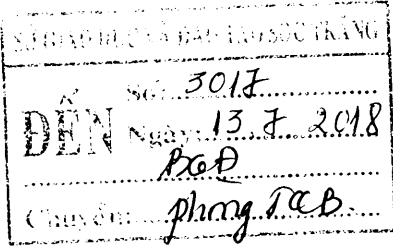 SỞ GIÁO DỤC VÀ ĐÀO TẠO SÓC TRĂNG
ĐẾN
Số: 3017
Ngày: 13.7.2018
BGĐ
Chuyển: phòng TCCB.